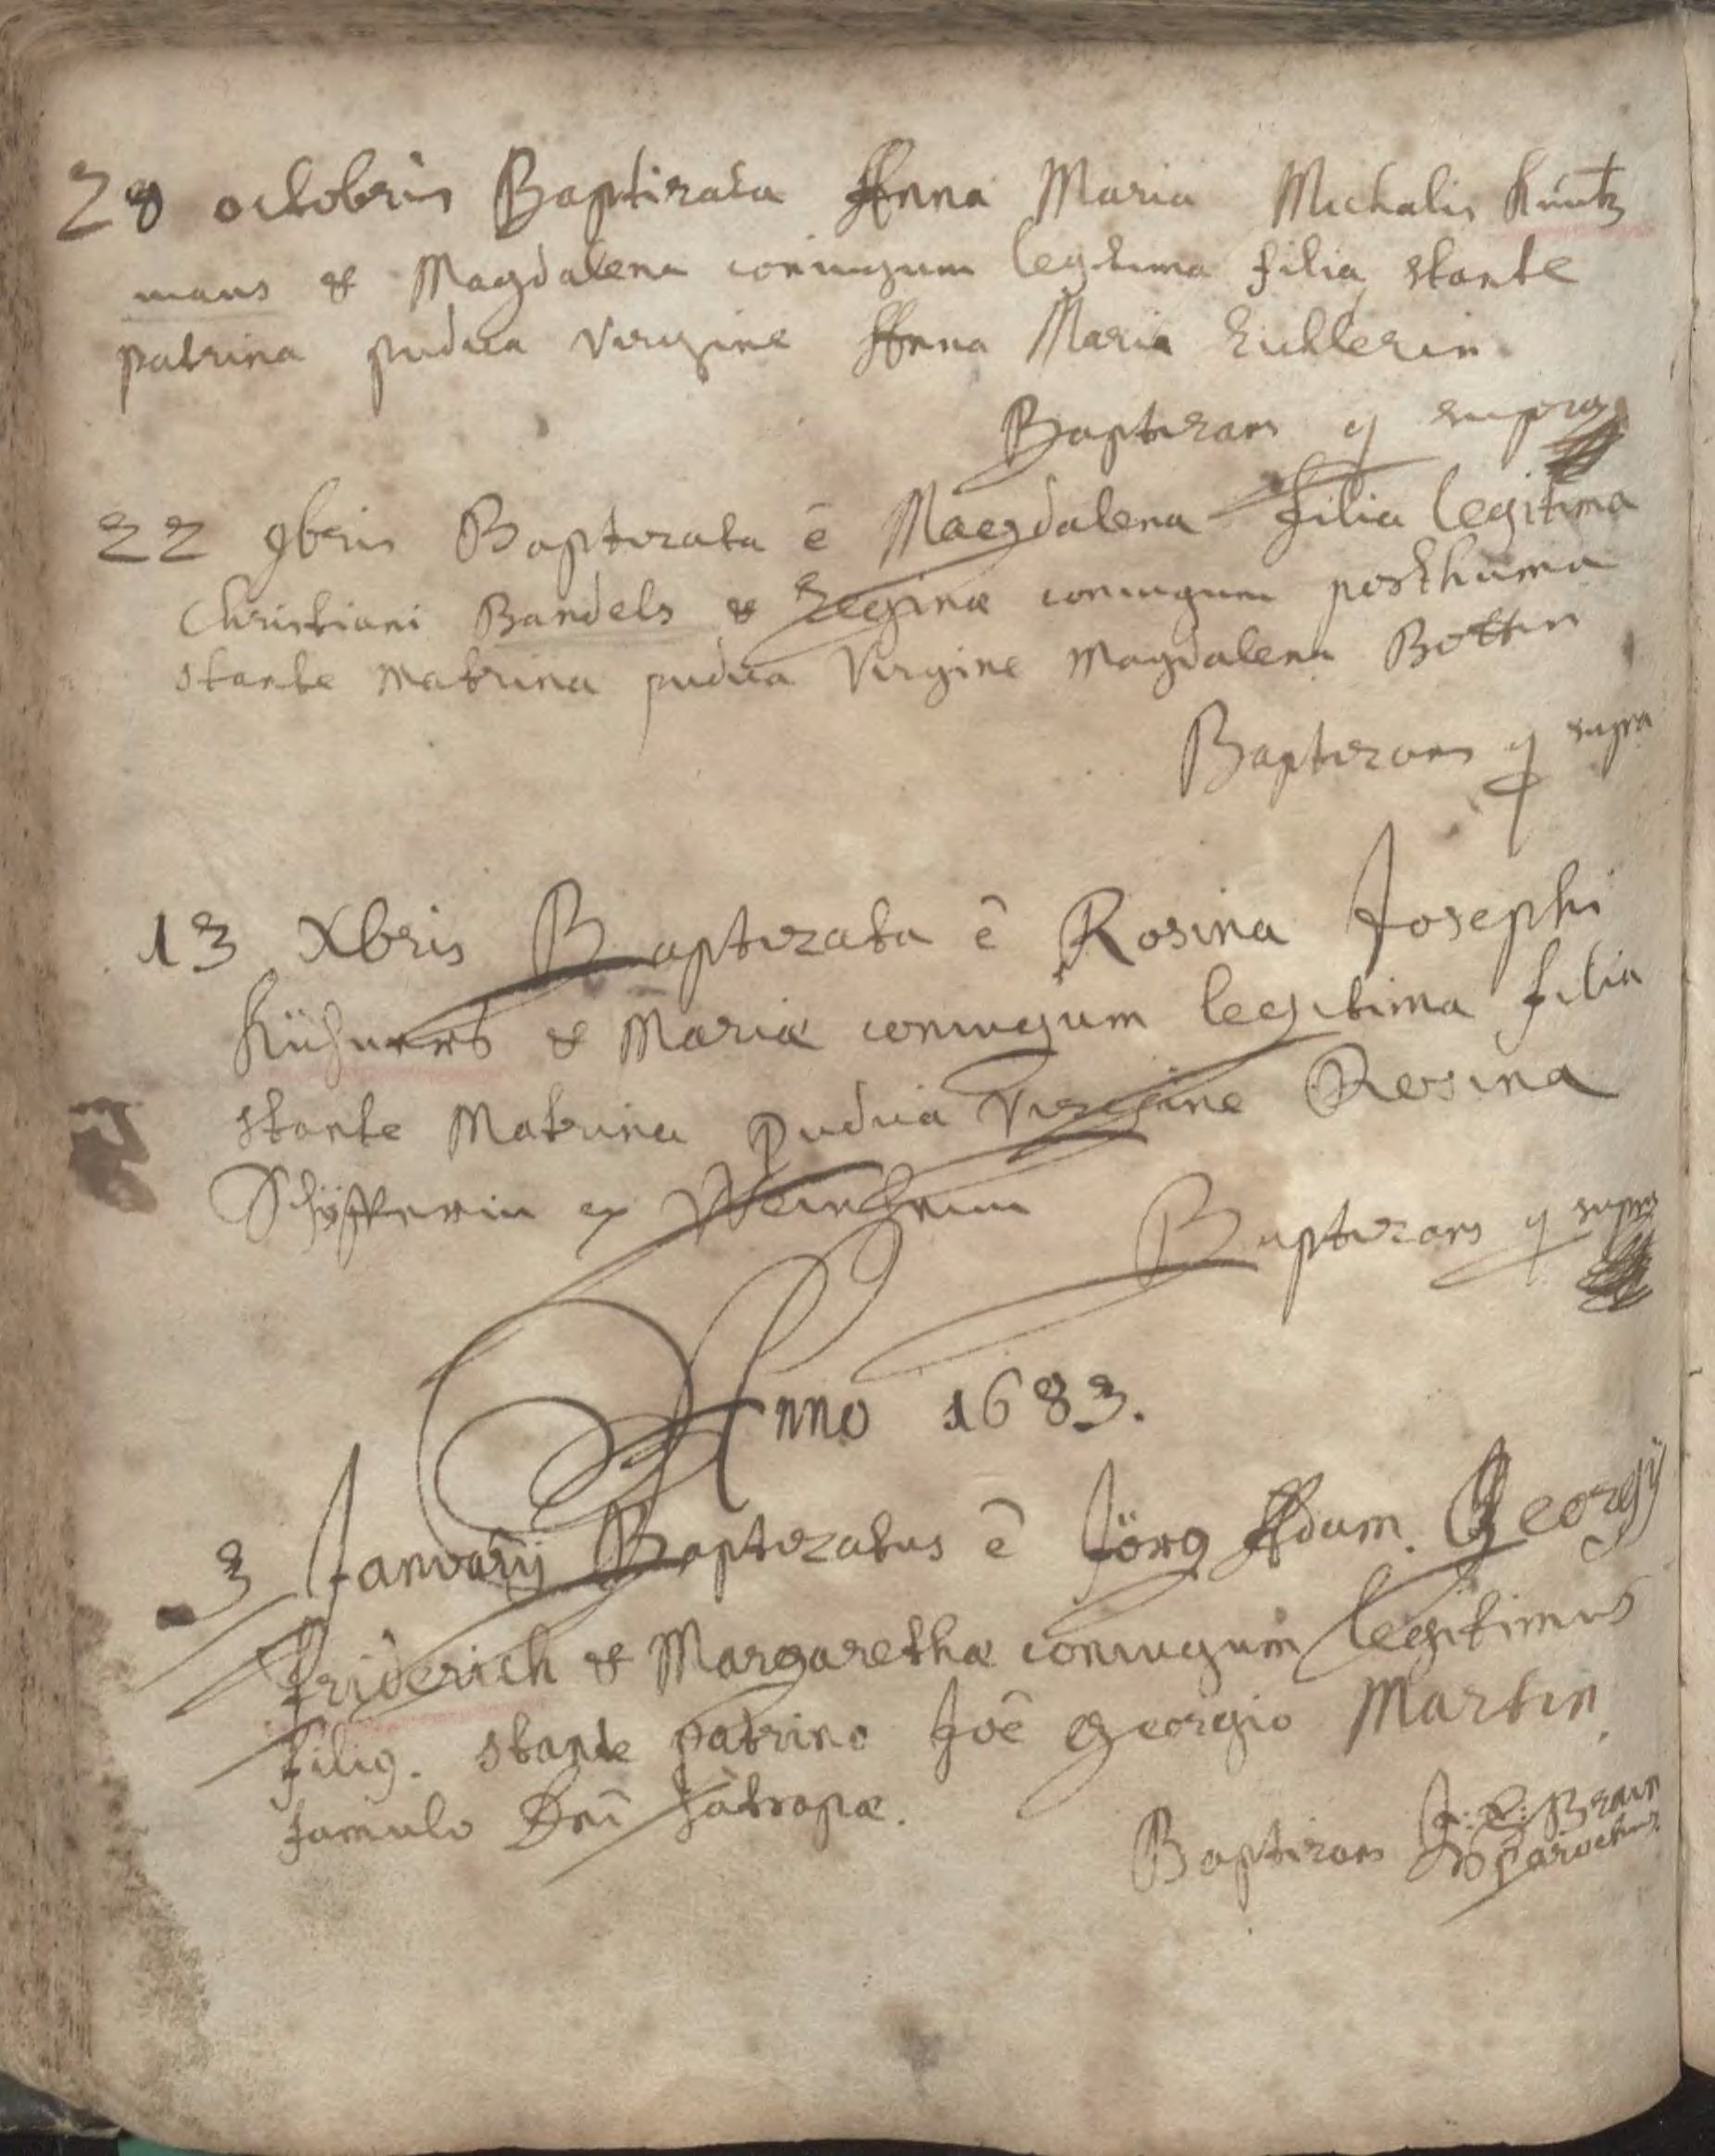 28 octobris Baptizata Anna Maria Michalis Küntz
mans & Magdalena coniugum legitima filia, stante
patrina pudica Virgine Anna Maria
Baptizans q supra
22 9bris Baptizata ē Magdalena filia legitima
Christiani Bandels & Reginæ coniugum posthuma
stante matrina pudica Virgine Magdalena Bottin
Baptizans q supra
13 Xbris Baptizata ē Rosina Josephi
& Mariæ coniugum legitima filia
stante Matrina pudica Virgine Rosina
ex Weinheim Baptizans q supra
Anno 1683.
3 Januarij Baptizatus ē Jörg Adam. Georgij
Friderich & Margarethæ coniugum legitimus
fili9. stante patrino Joē Georgio Martin
famulo Dnī Satrapæ.
Baptizans J: C: Braun
Parochus